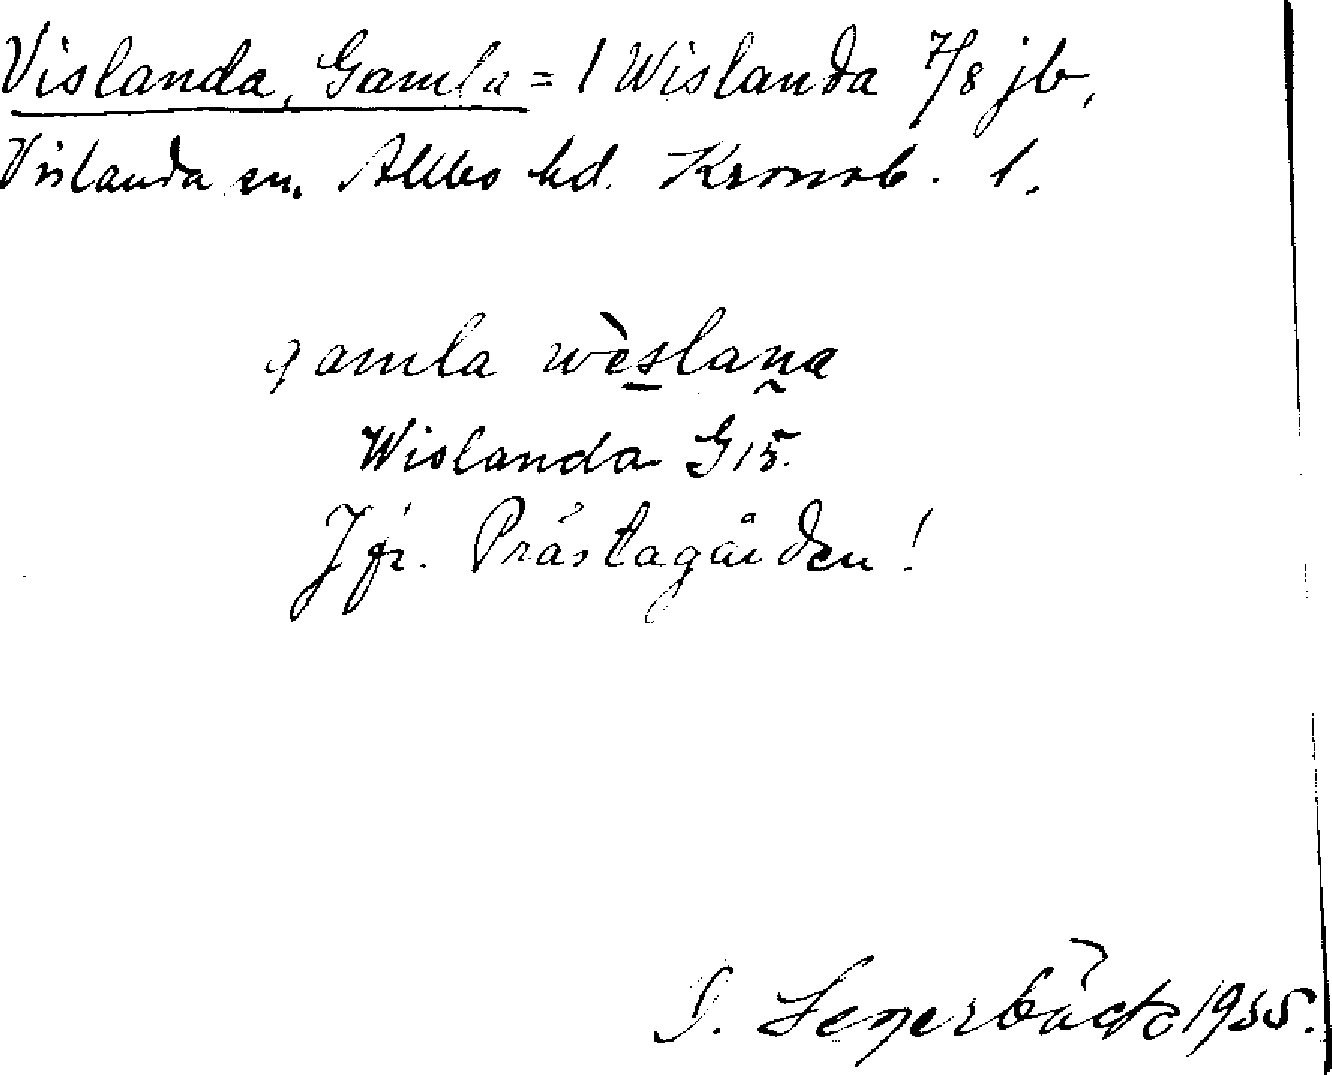 Vislanda, Gamla = 1 Wislanda 7/8 jb,
Vislanda sn. Allbo hd. Kronob. l.
gamla wèslaña
Wislanda G 15.
Jfr. Prästagården!
1955.